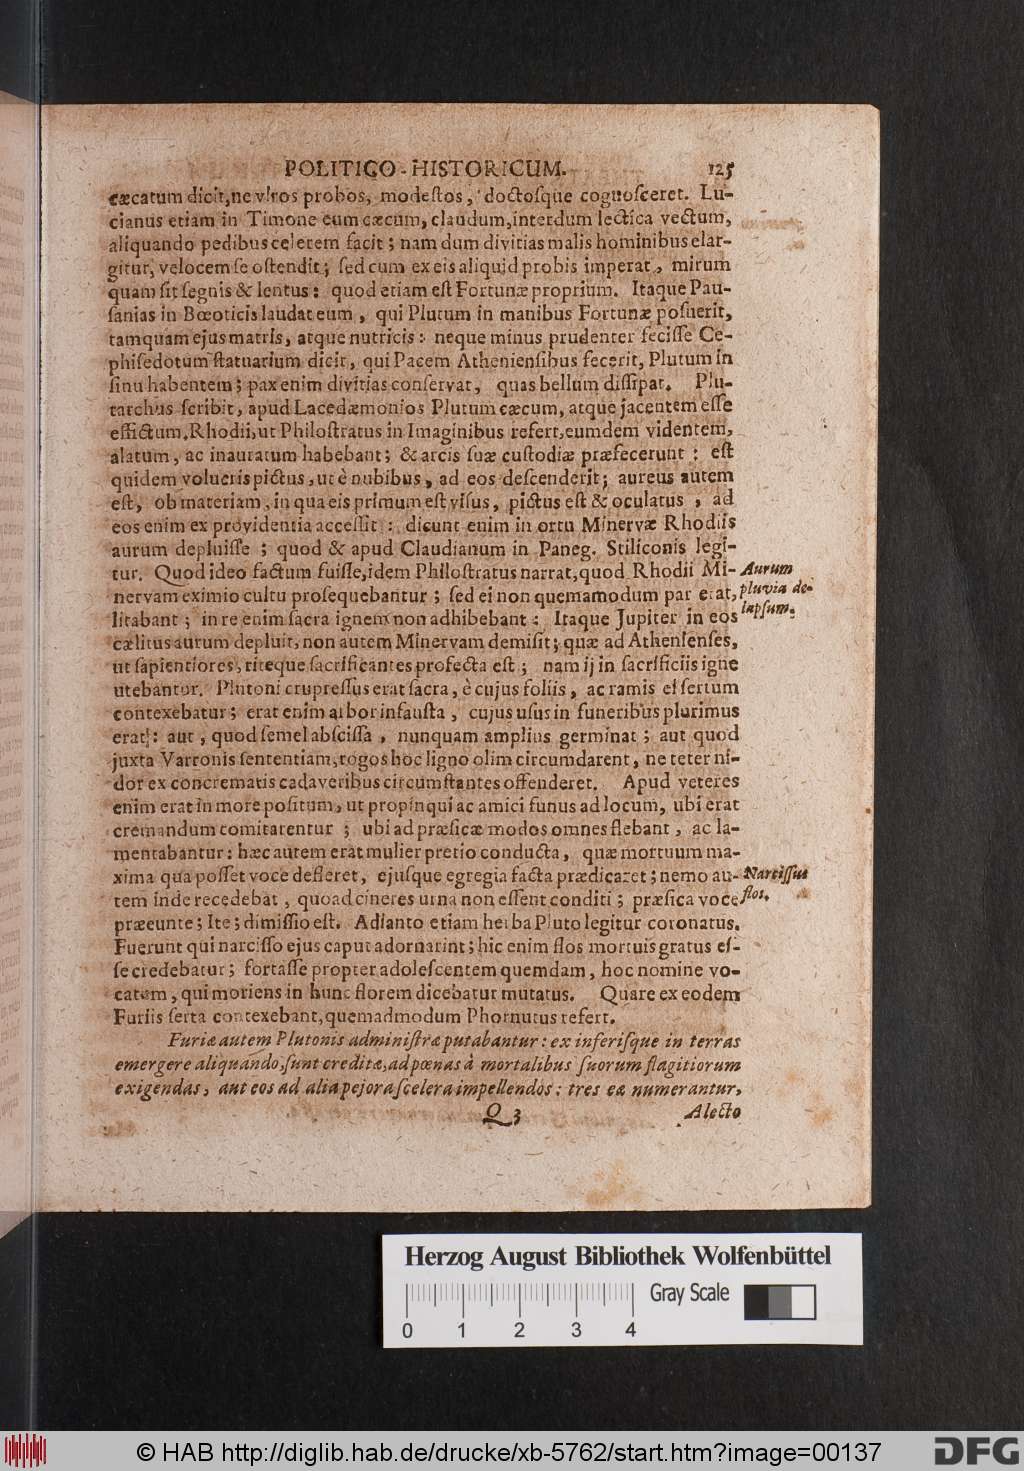 POLITICO-HISTORICUM. 125
cæcatum dicit, ne viros probos, modestos, doctosque cognosceret. Lu-
cianus etiam in Timone eum cæcum, claudum, interdum lectica vectum,
aliquando pedibus celerem facit; nam dum divitias malis hominibus elar-
gitur, velocem se ostendit; sed cum ex eis aliquid probis imperat, mirum
quam sit segnis & lentus: quod etiam est Fortunæ proprium. Itaque Pau-
sanias in Bœoticis laudat eum, qui Plutum in manibus Fortunæ posuerit,
tamquam ejus matris, atque nutricis: neque minus prudenter fecisse Ce-
phisedotum statuarium dicit, qui Pacem Atheniensibus fecerit, Plutum in
sinu habentem; pax enim divitias conservat, quas bellum dissipat. Plu-
tarchus scribit, apud Lacedæmonios Plutum cæcum, atque jacentem esse
effictum. Rhodii, ut Philostratus in Imaginibus refert, eumdem videntem,
alatum, ac inauratum habebant; & arcis suæ custodiæ præfecerunt: est
quidem volucris pictus, ut è nubibus, ad eos descenderit; aureus autem
est, ob materiam, in qua eis primum est visus, pictus est & oculatus, ad
eos enim ex providentia accessit: dicunt enim in ortu Minervæ Rhodiis
aurum depluisse; quod & apud Claudianum in Paneg. Stiliconis legi-
tur. Quod ideo factum fuisse, idem Philostratus narrat, quod Rhodii Mi-
nervam eximio cultu prosequebantur; sed ei non quemamodum par erat,
litabant; in re enim sacra ignem non adhibebant: Itaque Jupiter in eos
cælitus aurum depluit, non autem Minervam demisit; quæ ad Athenienses,
ut sapientiores, riteque sacrificantes profecta est; nam ij in sacrificiis igne
utebantur. Plutoni crupressus erat sacra, è cujus foliis, ac ramis ei sertum
contexebatur; erat enim arbor infausta, cujus usus in funeribus plurimus
erat: aut, quod semel abscissa, nunquam amplius germinat; aut quod
juxta Varronis sententiam, rogos hoc ligno olim circumdarent, ne teter ni-
dor ex concrematis cadaveribus circumstantes offenderet. Apud veteres
enim erat in more positum, ut propinqui ac amici funus ad locum, ubi erat
cremandum comitarentur; ubi ad præficæ modos omnes flebant, ac la-
mentabantur: hæc autem erat mulier pretio conducta, quæ mortuum ma-
xima qua posset voce defleret, ejusque egregia facta prædicaret; nemo au-
tem inde recedebat, quoad cineres urna non essent conditi; præfica voce
præeunte; Ite; dimissio est. Adianto etiam herba Pluto legitur coronatus.
Fuerunt qui narcisso ejus caput adornarint; hic enim flos mortuis gratus es-
se credebatur; fortasse propter adolescentem quemdam, hoc nomine vo-
catum, qui moriens in hunc florem dicebatur mutatus. Quare ex eodem
Furiis serta contexebant, quemadmodum Phornutus refert.
Furiæ autem Plutonis administræ putabantur: ex inferisque in terras
emergere aliquando, sunt creditæ, ad pœnas à mortalibus suorum flagitiorum
exigendas, aut eos ad alia pejora scelera impellendos: tres eæ numerantur,
Q 3 Alecto
Aurum
pluvia de-
lapsum.
Narcissus
flos.
Herzog August Bibliothek Wolfenbüttel
Gray Scale
0 1 2 3 4
© HAB http://diglib.hab.de/drucke/xb-5762/start.htm?image=00137
DFG